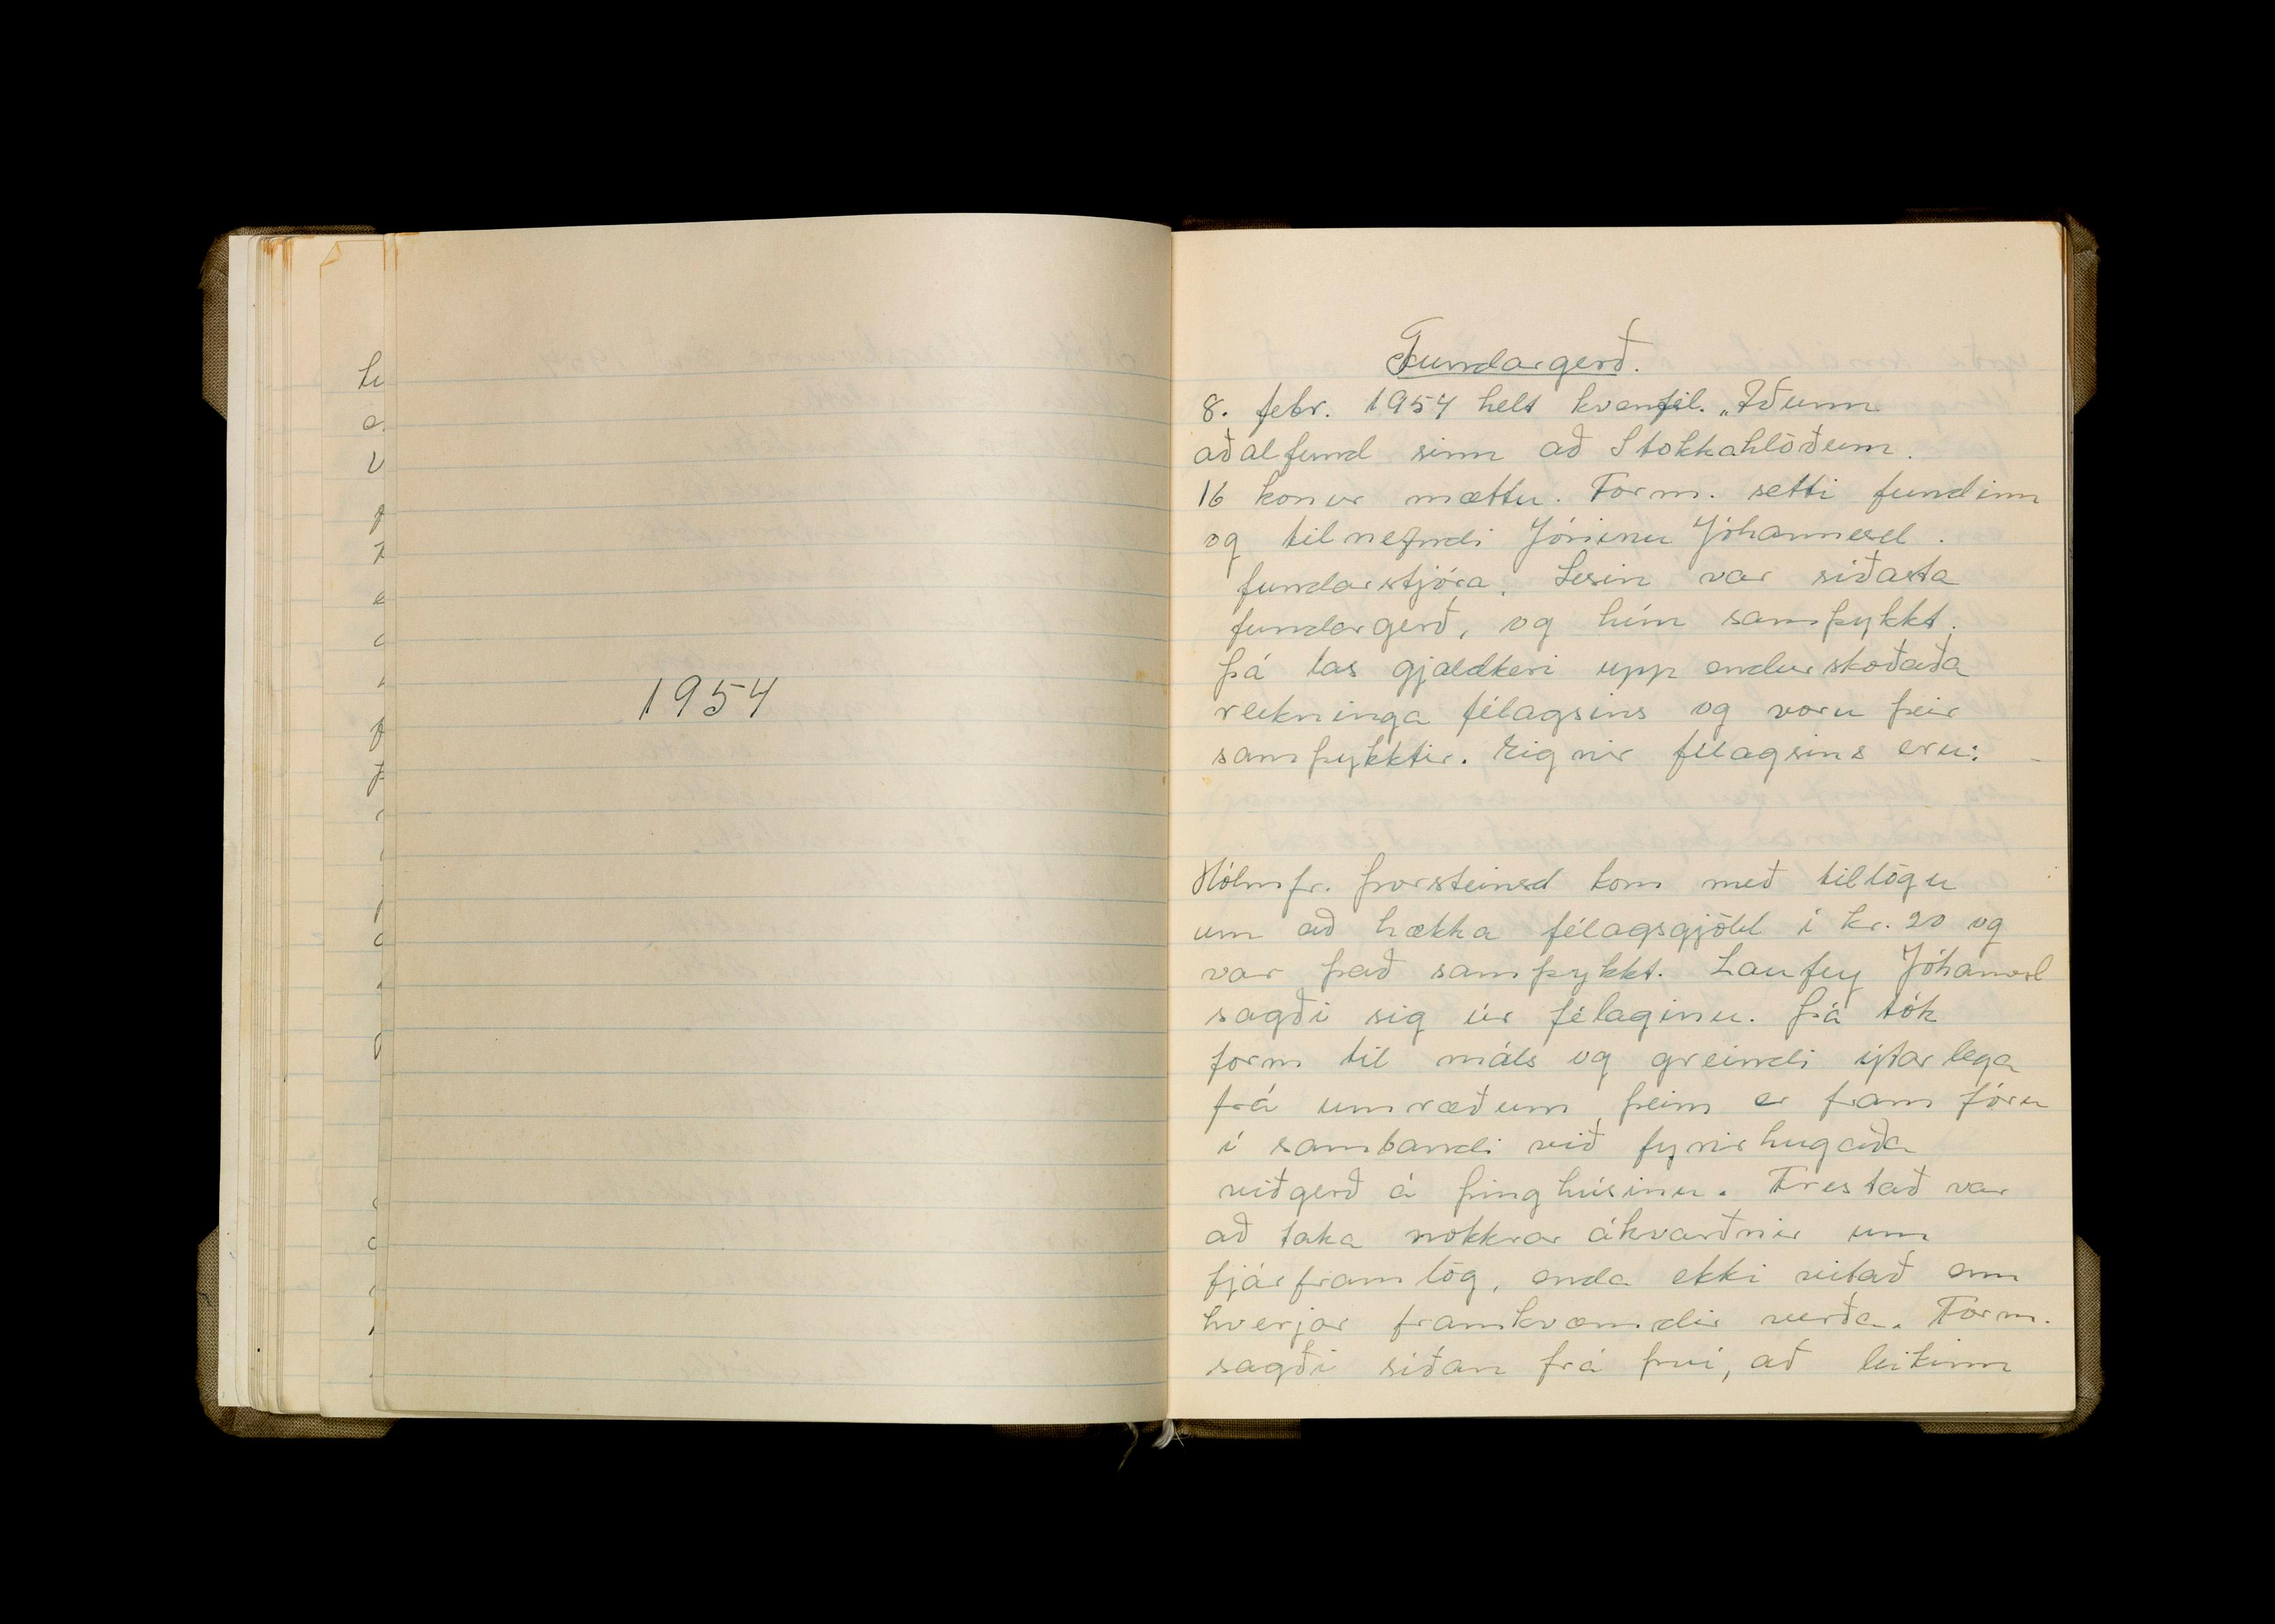 1954
Fundargerð.
8. febr. 1954 helt kvenfél. „Iðunn
aðalfund sinn að Stokkahlöðum.
16 konur mættu. Form. setti fundinn
og tilnefndi Jónínu Jóhannesd.
fundarstjóra. Lesin var síðasta
fundargerð, og hún samþykkt.
Þá las gjaldkeri upp endurskoðaða
reikninga félagsins og voru þeir
samþykktir. Eignir félagsins eru:
Hólmfr. Þorsteinsd kom með tillögu
um að hækka félagsgjöld í kr. 20 og
var það samþykkt. Laufey Jóhannsd
sagði sig úr félaginu. Þá tók
form til máls og greindi ýtarlega
frá umræðum þeim er fram fóru
í sambandi við fyrirhugaða
viðgerð á þinghúsinu. Frestað var
að taka nokkrar ákvarðnir um
fjárframlög, enda ekki vitað enn
hverjar framkvæmdir verða. Form.
sagði síðan frá því, að leikinn